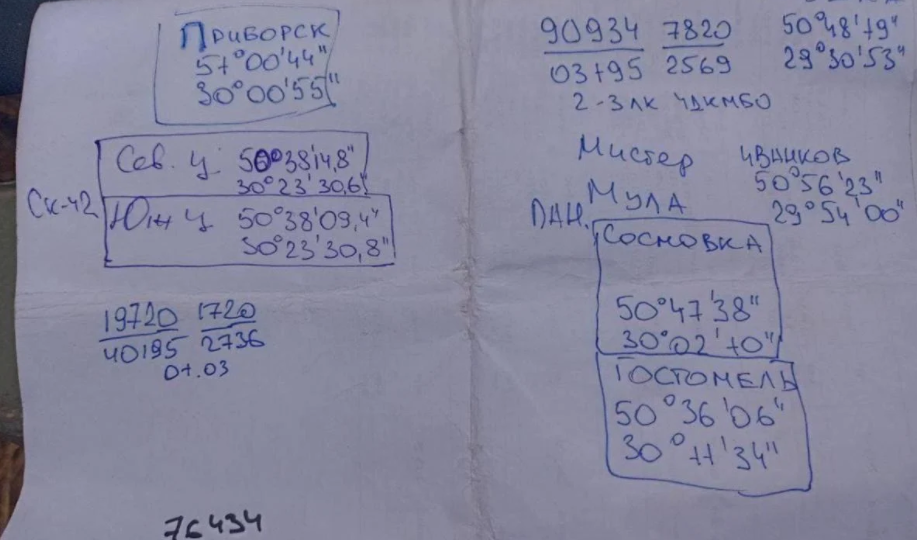 Приборск
51°00'44"
30°00'55"
Сев. ц. 50°38'14,8"
30°23'30,6"
СК-42
Южн ц 50°38'09,4"
30°23'30,8"
19720 1720
40195 2736
01.03
76434
90934 7820
03195 2569
50°48'19"
29°30'53"
Мистер
Иванков
50°56'23"
29°54'00"
Мула
Сосновка
50°47'38"
30°02'10"
Гостомель
50°36'06"
30°11'34"